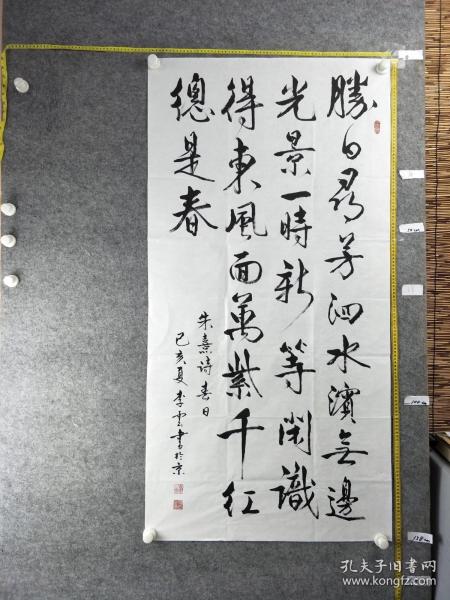 勝日尋芳泗水濱無邊
光景一時新等閑識
得東風面萬紫千紅
總是春
朱熹詩春日
己亥夏李雲書於京
孔夫子旧书网
www.kongfz.com